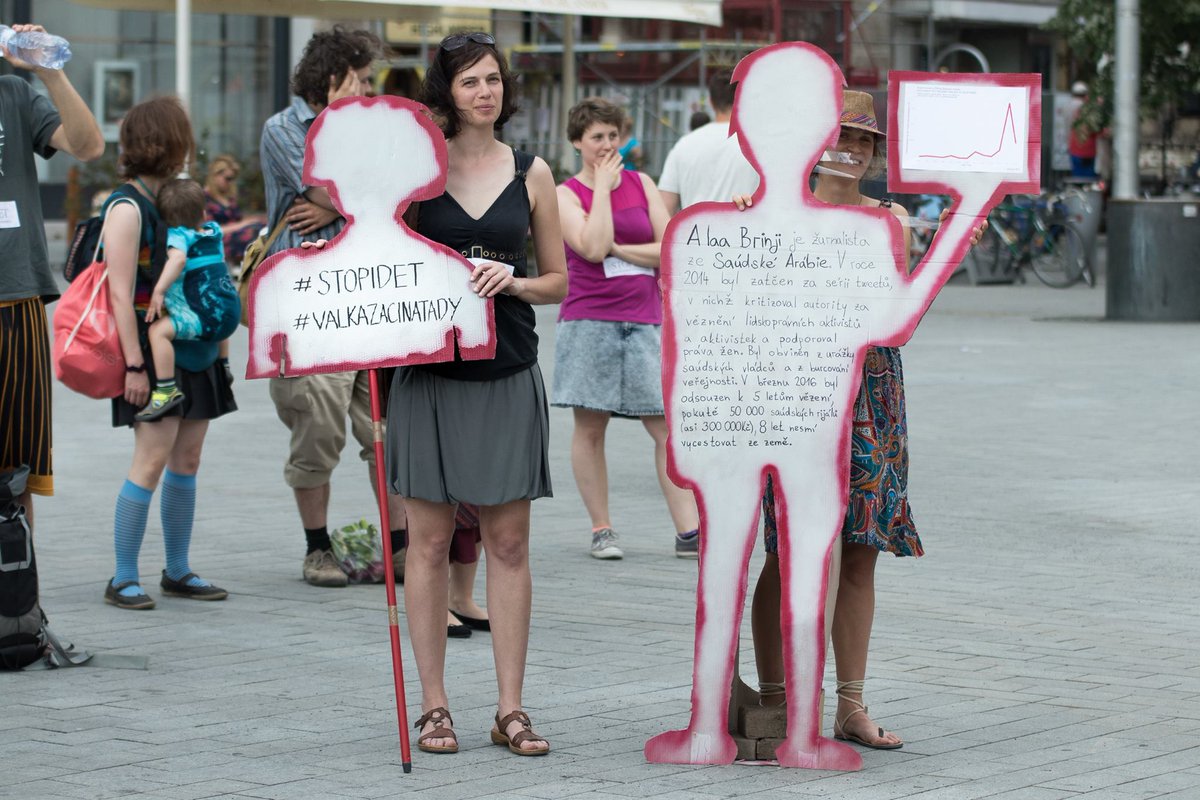 # STOPIDET
#VALKAZACINATADY
Alaa Brinji je žurnalista
ze Saúdské Arábie. V roce
2014 byl zatčen za sérii tweetů,
v nichž kritizoval autority za
věznění lidskoprávních aktivistů
a aktivistek a podporoval
práva žen. Byl obviněn z urážky
saúdských vládců a z burcování
veřejnosti. V březnu 2016 byl
odsouzen k 5 letům vězení,
pokutě 50 000 saúdských rijálů
(asi 300 000Kč), 8 let nesmí
vycestovat ze země.